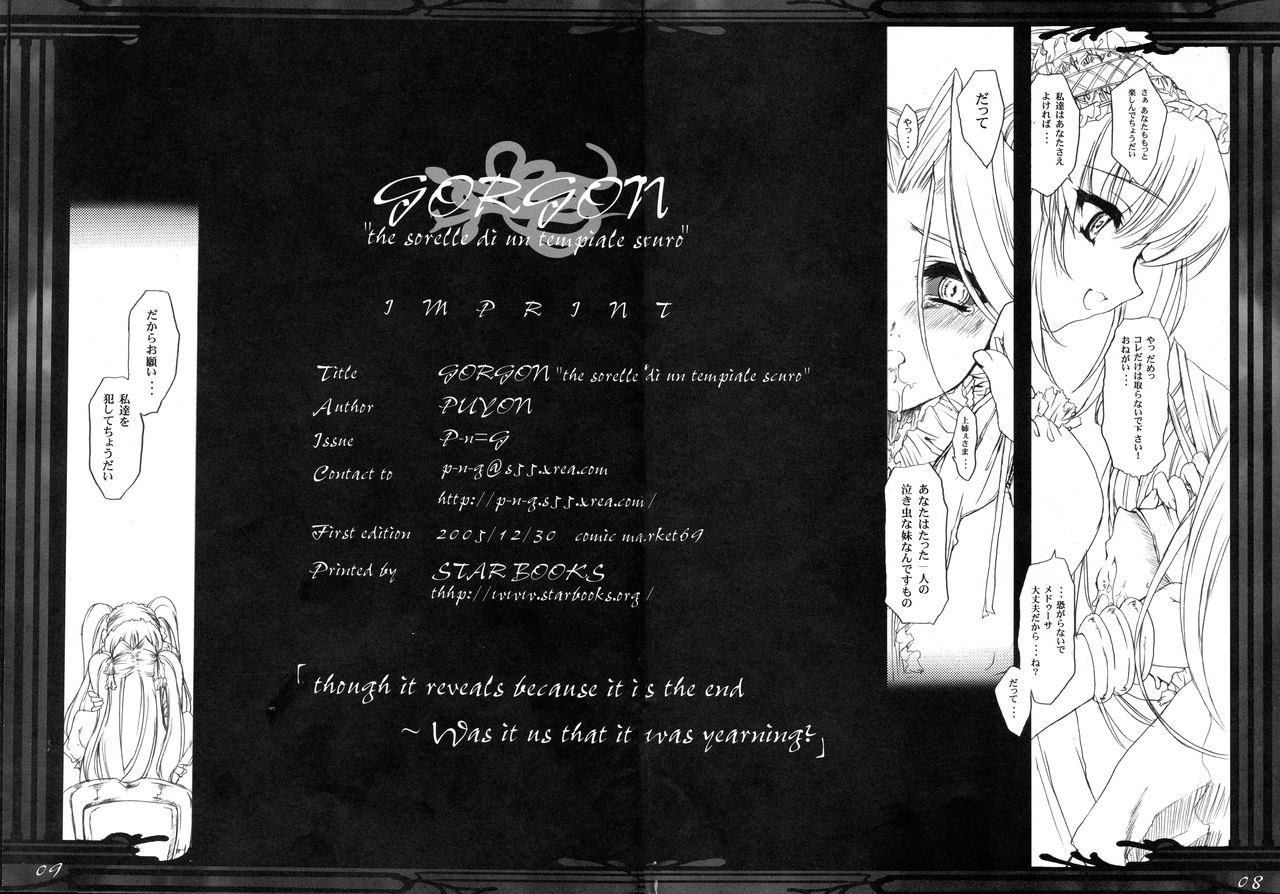 さぁ あなたももっと
楽しんでちょうだい
私達はあなたさえ
よければ・・・
やっ だめっ
コレだけは取らないで下さい!
おねがい・・・
・・・恐がらないで
メドゥーサ
大丈夫だから・・・ね?
だって・・・
だって
やっ・・・
上姉ぇさま・・・
あなたはたった一人の
泣き虫な妹なんですもの
08
GORGON
"the sorelle di un tempiale scuro"
IMPRINT
Title GORGON "the sorelle di un tempiale scuro"
Author PUYON
Issue P-n=G
Contact to p-n-g@s55.xrea.com
http://p-n-g.s55.xrea.com/
First edition 2005/12/30 comic market69
Printed by STAR BOOKS
thhp://www.starbooks.org/
「though it reveals because it is the end
~ Was it us that it was yearning?」
だからお願い・・・
私達を
犯してちょうだい
09